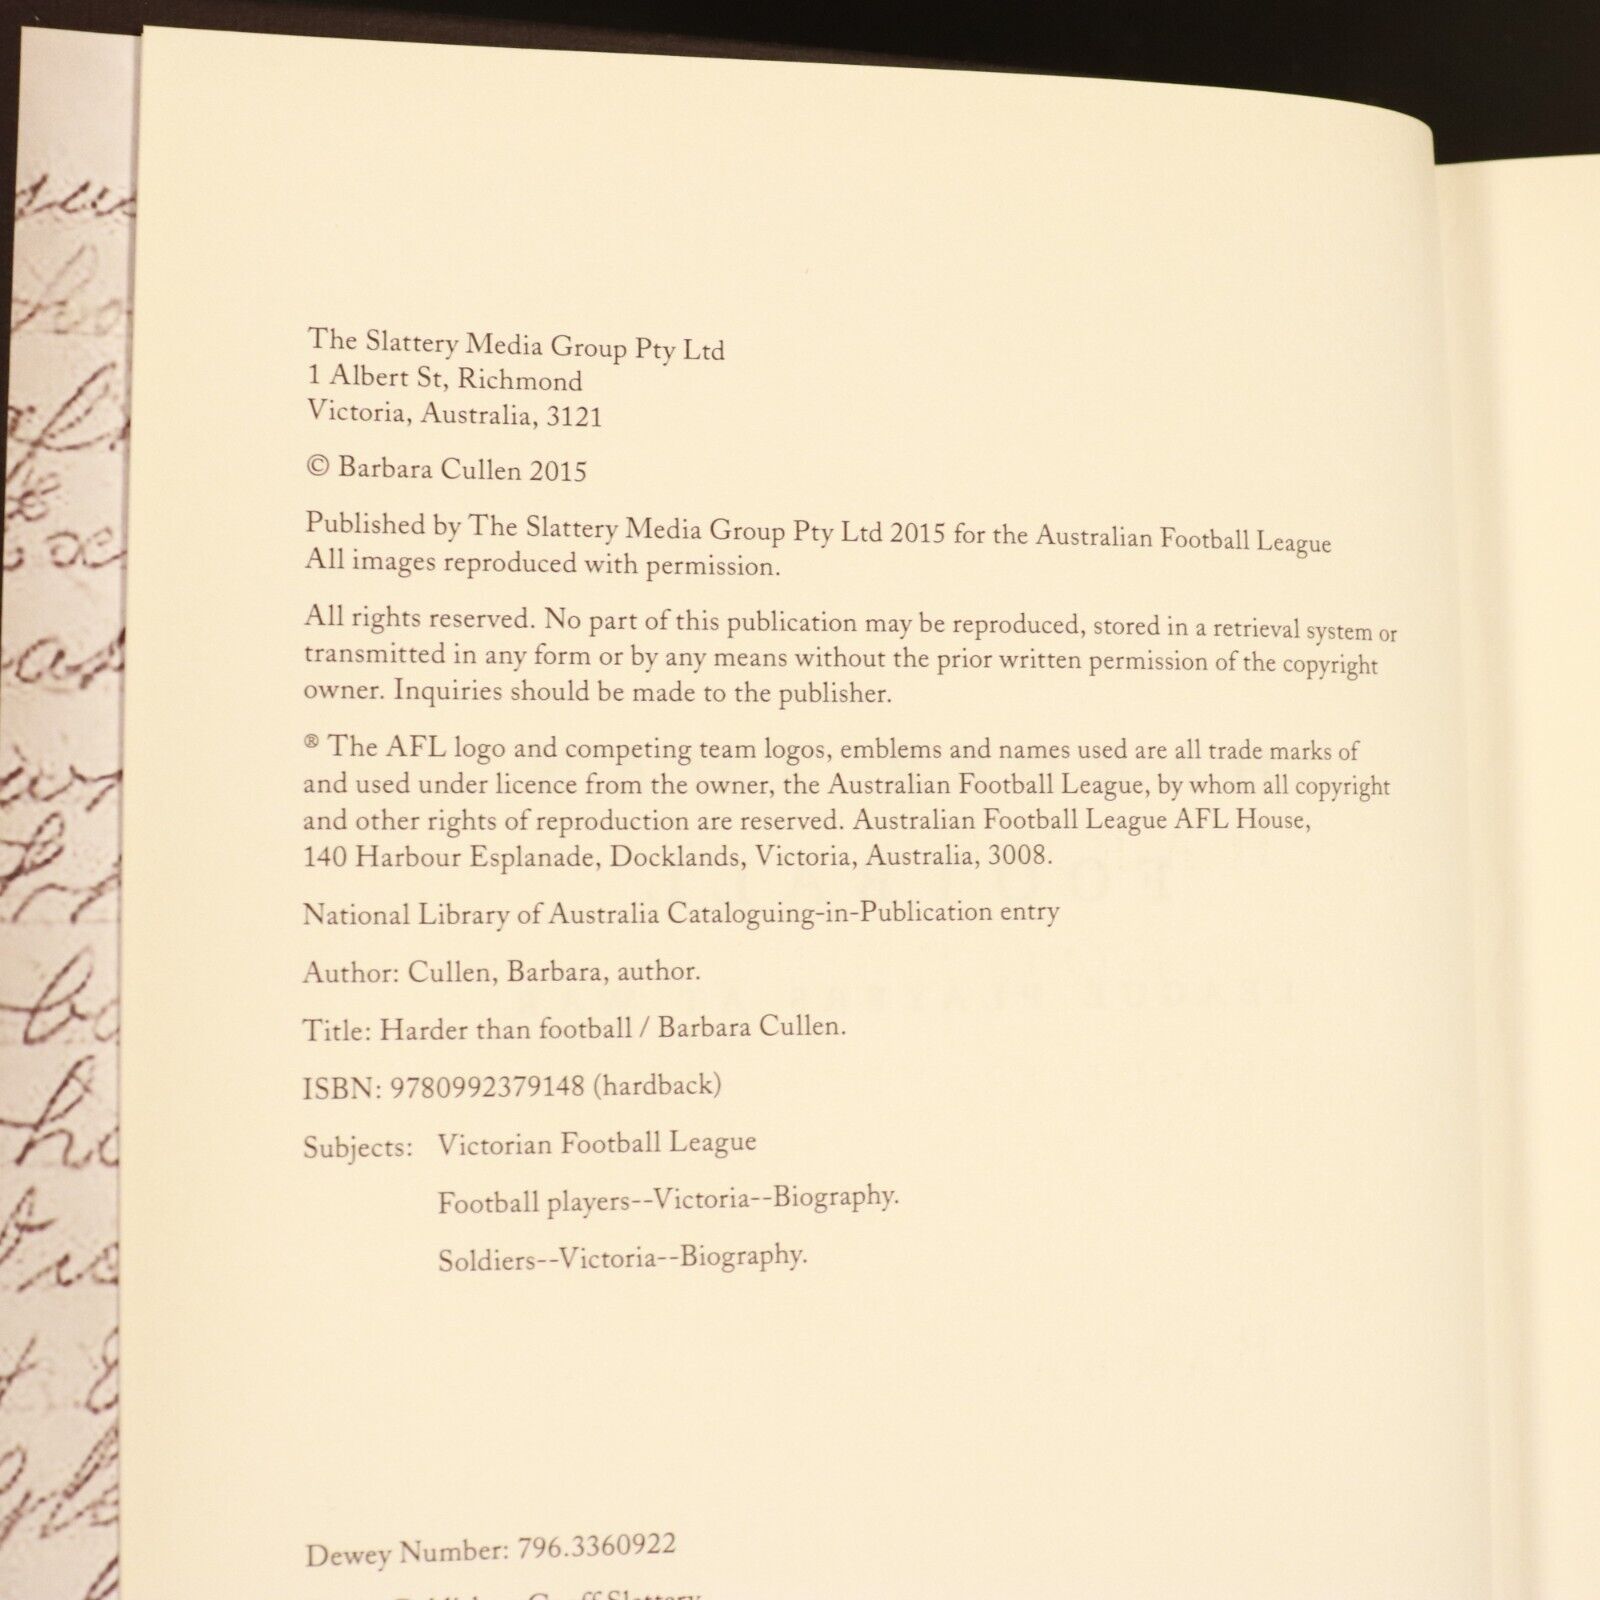 The Slattery Media Group Pty Ltd
1 Albert St, Richmond
Victoria, Australia, 3121
© Barbara Cullen 2015
Published by The Slattery Media Group Pty Ltd 2015 for the Australian Football League
All images reproduced with permission.
All rights reserved. No part of this publication may be reproduced, stored in a retrieval system or
transmitted in any form or by any means without the prior written permission of the copyright
owner. Inquiries should be made to the publisher.
® The AFL logo and competing team logos, emblems and names used are all trade marks of
and used under licence from the owner, the Australian Football League, by whom all copyright
and other rights of reproduction are reserved. Australian Football League AFL House,
140 Harbour Esplanade, Docklands, Victoria, Australia, 3008.
National Library of Australia Cataloguing-in-Publication entry
Author: Cullen, Barbara, author.
Title: Harder than football / Barbara Cullen.
ISBN: 9780992379148 (hardback)
Subjects: Victorian Football League
Football players--Victoria--Biography.
Soldiers--Victoria--Biography.
Dewey Number: 796.3360922
Geoff Slattery